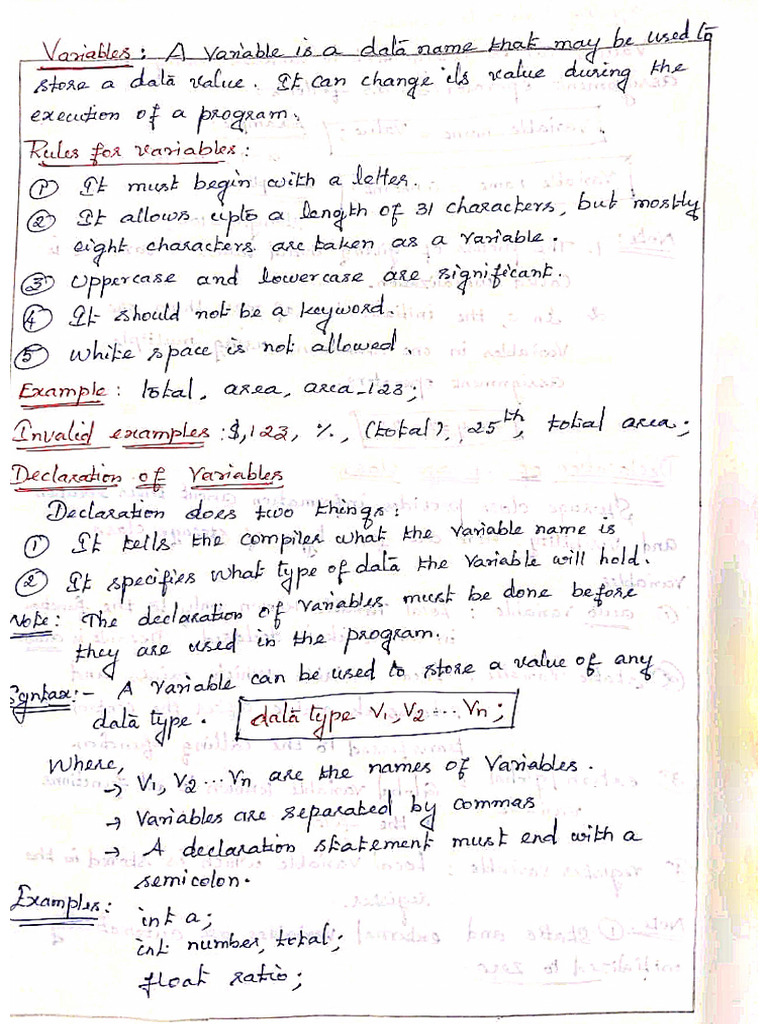 Variables : A variable is a data name that may be used to
store a data value. It can change its value during the
execution of a program.
Rules for variables :
① It must begin with a letter.
② It allows upto a length of 31 characters, but mostly
eight characters are taken as a variable.
③ Uppercase and lowercase are significant.
④ It should not be a keyword.
⑤ White space is not allowed.
Example : total, area, area_123;
Invalid examples : $,123, %, (total), 25th, total area;
Declaration of Variables
Declaration does two things :
① It tells the compiler what the variable name is
② It specifies what type of data the variable will hold.
Note : The declaration of variables must be done before
they are used in the program.
Syntax :- A variable can be used to store a value of any
data type. data type V1, V2 ... Vn ;
Where,
→ V1, V2 ... Vn are the names of Variables.
→ Variables are separated by commas
→ A declaration statement must end with a
semicolon.
Examples :
int a;
int number, total;
float ratio;